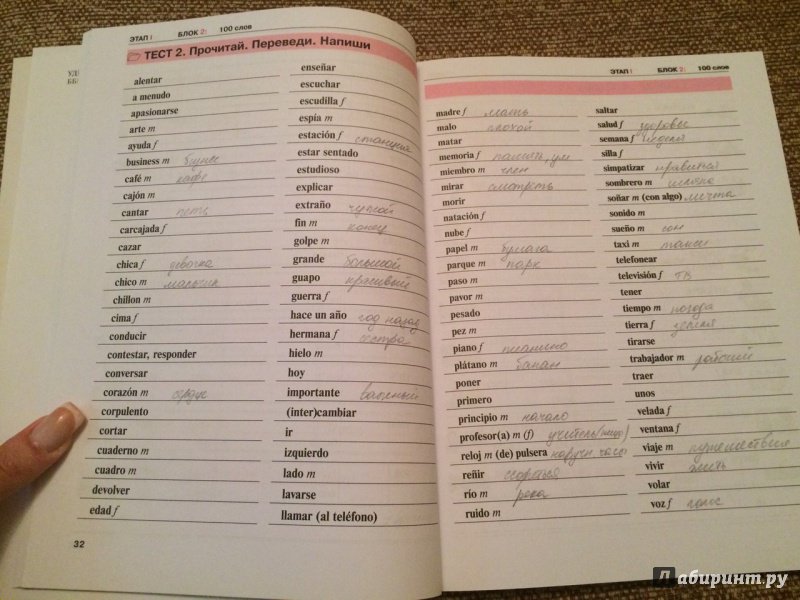 ЭТАП I БЛОК 2: 100 слов
ТЕСТ 2. Прочитай. Переведи. Напиши
alentar
a menudo
apasionarse
arte m
ayuda f
business m бизнес
café m кафе
cajón m
cantar петь
carcajada f
cazar
chica f девочка
chico m мальчик
chillon m
cima f
conducir
contestar, responder
conversar
corazón m сердце
corpulento
cortar
cuaderno m
cuadro m
devolver
edad f
32
enseñar
escuchar
escudilla f
espía m
estación f станция
estar sentado
estudioso
explicar
extraño чужой
fin m конец
golpe m
grande большой
guapo красивый
guerra f
hace un año год назад
hermana f сестра
hielo m
hoy
importante важный
(inter)cambiar
ir
izquierdo
lado m
lavarse
llamar (al teléfono)
ЭТАП I БЛОК 2: 100 слов
madre f мать
malo плохой
matar
memoria f память, ум
miembro m член
mirar смотреть
morir
natación f
nube f
papel m бумага
parque m парк
paso m
pavor m
pesado
pez m
piano f пианино
plátano m банан
poner
primero
principio m начало
profesor(a) m (f) учитель
reloj m (de) pulsera наручн. часы
reñir ссориться
río m река
ruido m
saltar
salud f здоровье
semana f неделя
silla f
simpatizar нравится
sombrero m шляпа
soñar m (con algo) мечта
sonido m
sueño m сон
taxi m такси
telefonear
televisión f ТВ
tener
tiempo m погода
tierra f земля
tirarse
trabajador m рабочий
traer
unos
velada f
ventana f
viaje m путешествие
vivir жить
volar
voz f голос
Лабиринт.ру